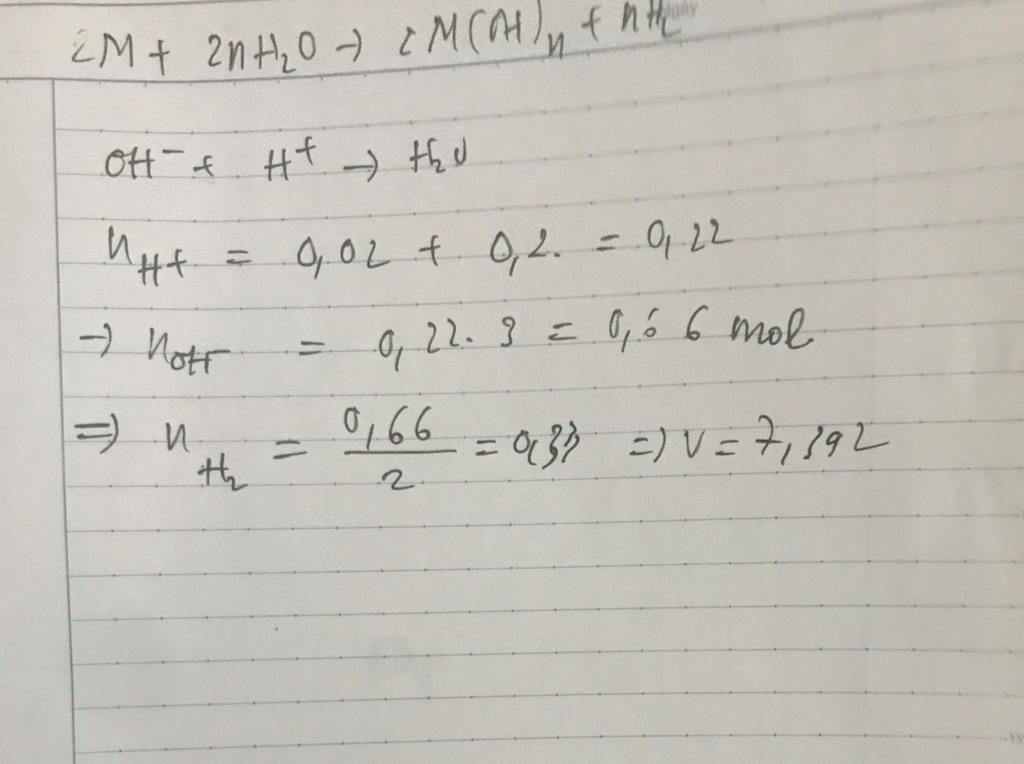 2M + 2nH₂O → 2M(OH)ₙ + nH₂
OH⁻ + H⁺ → H₂O
n_H+ = 0,02 + 0,2. = 0,22
→ n_OH- = 0,22.3 = 0,66 mol
⇒ n_H₂ = 0,66/2 = 0,33 ⇒ V = 7,392